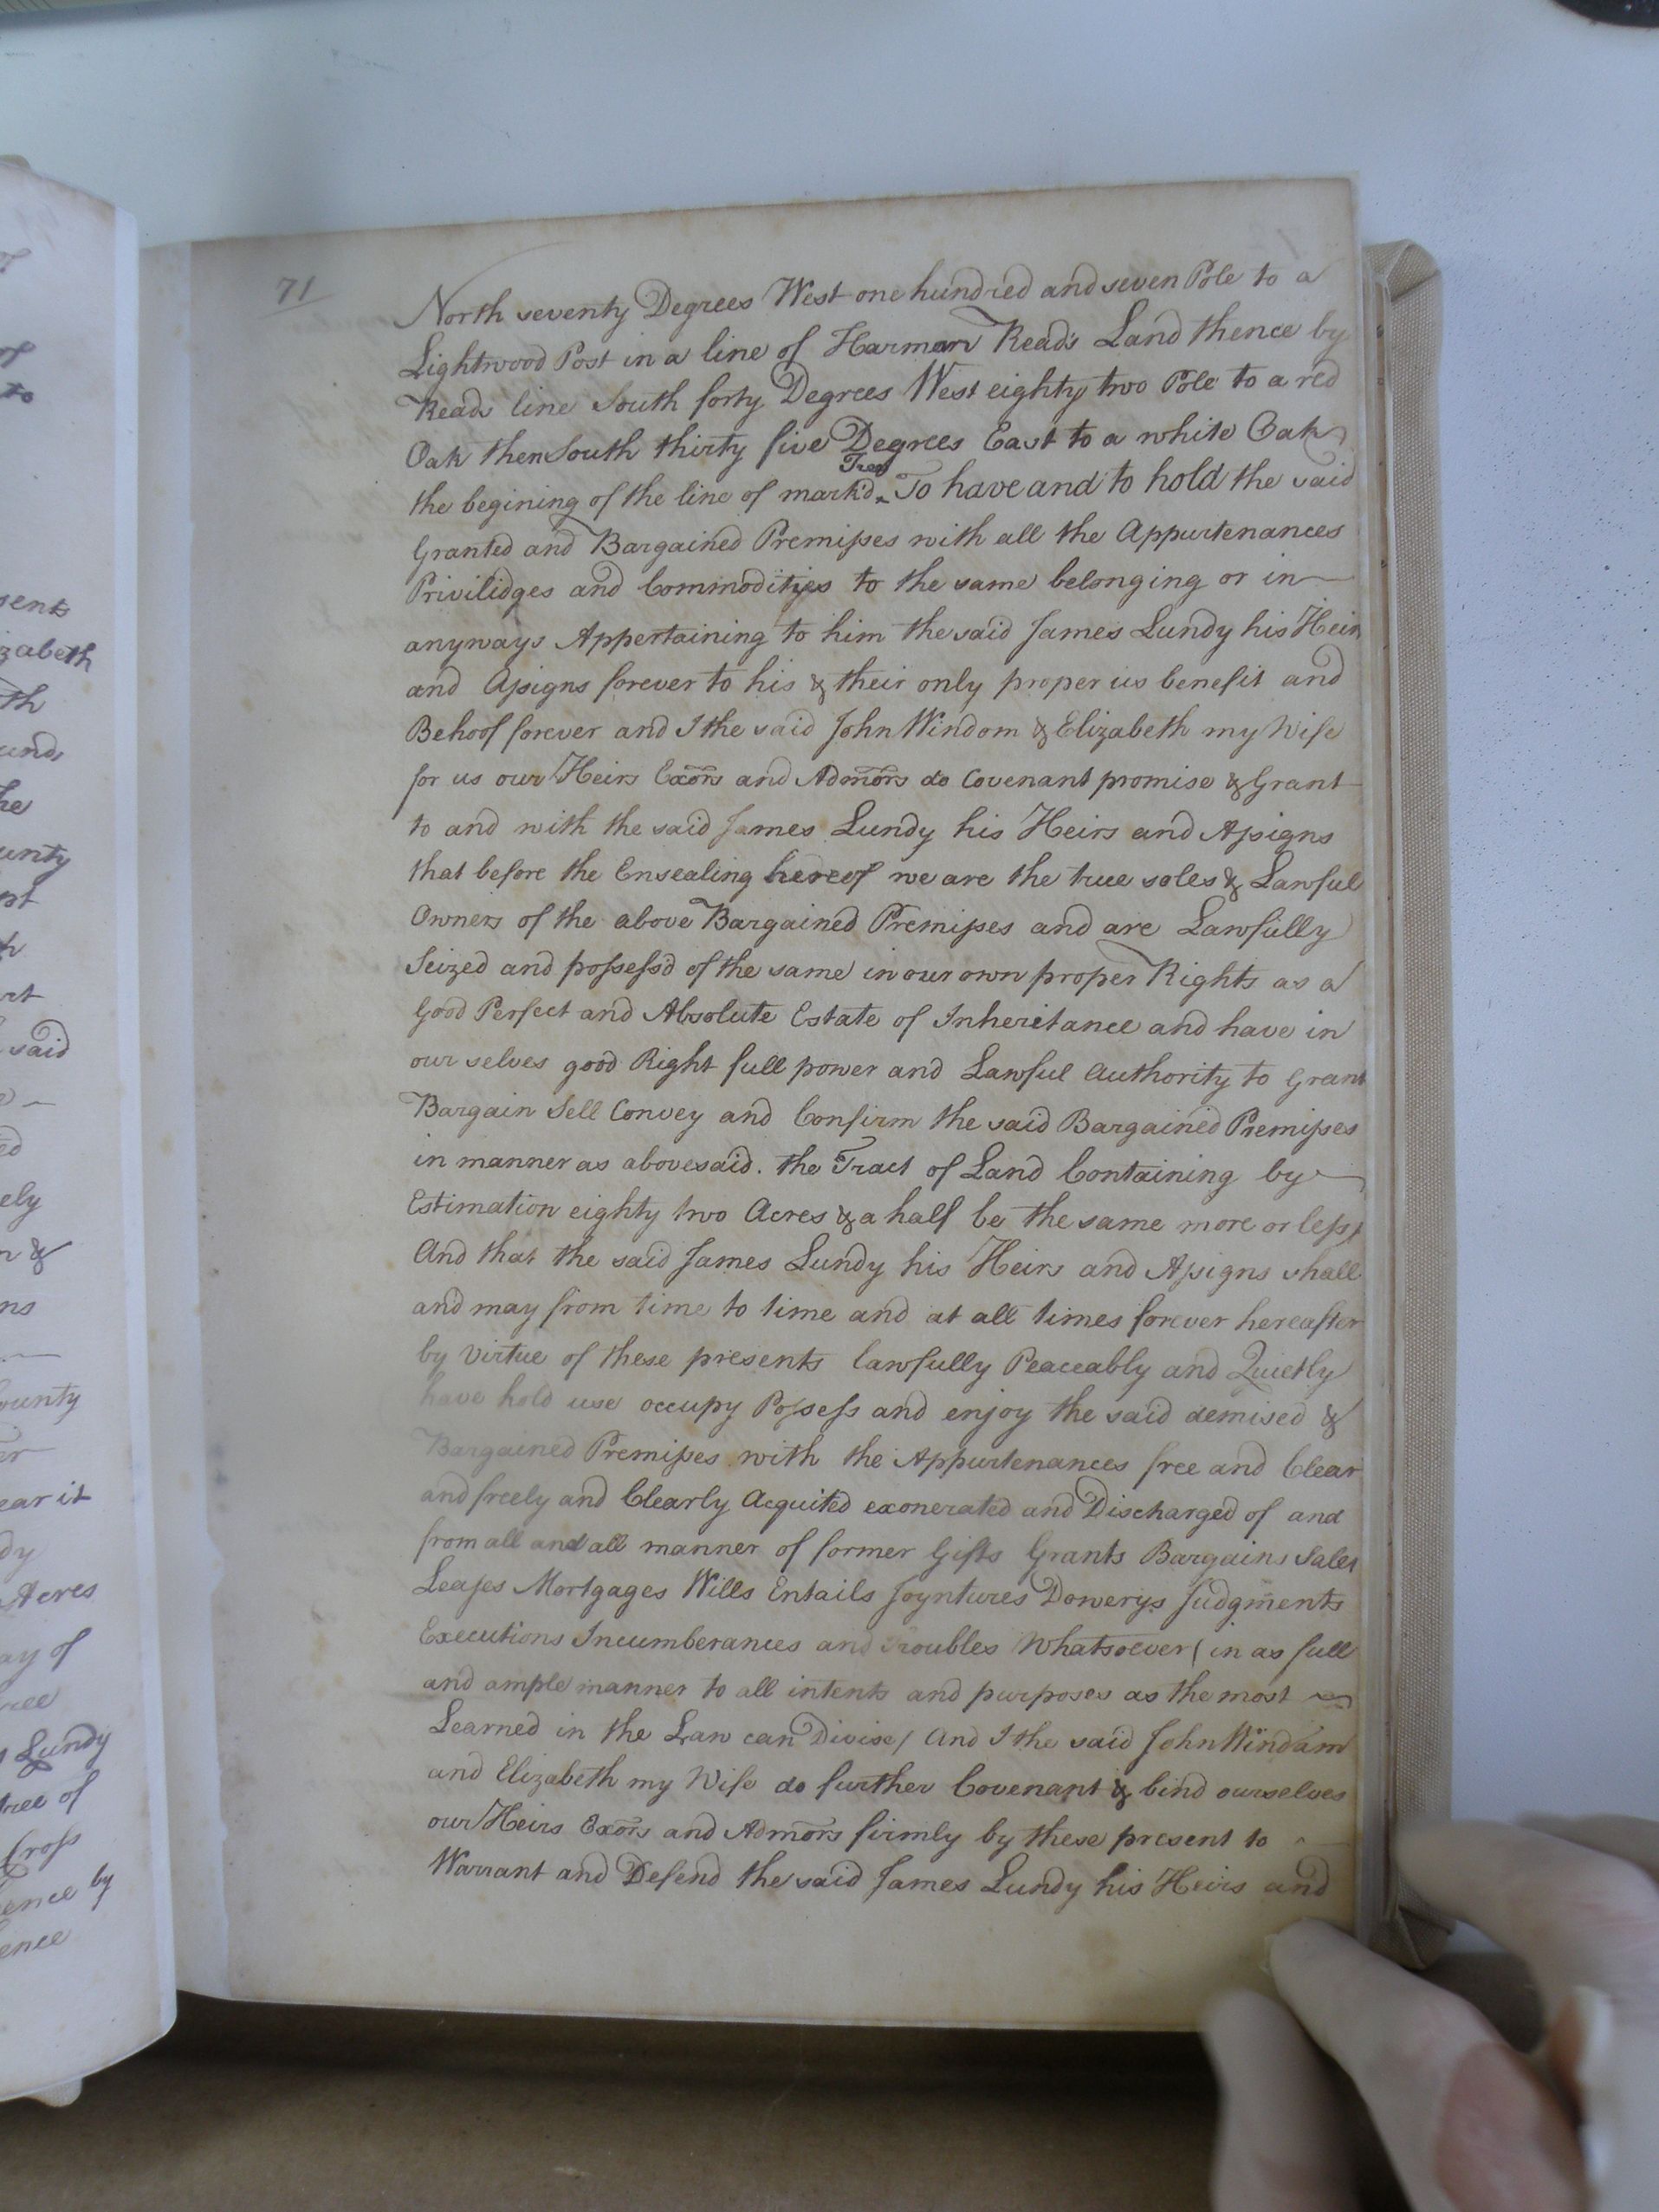 71
North seventy Degrees West one hundred and seven Pole to a
Lightwood Post in a line of Harman Reads Land thence by
Reads line South forty Degrees West eighty two Pole to a red
Oak then South thirty five Degrees East to a white Oak
Tree
the begining of the line of mark'd ^ To have and to hold the said
Granted and Bargained Premises with all the Appurtenances
Privilidges and Commodities to the same belonging or in
anyways Appertaining to him the said James Lundy his Heirs
and Assigns forever to his & their only proper us benefit and
Behoof forever and I the said John Windom & Elizabeth my Wife
for us our Heirs Exors and Admors do Covenant promise & Grant
to and with the said James Lundy his Heirs and Assigns
that before the Ensealing hereof we are the true soles & Lawful
Owners of the above Bargained Premises and are Lawfully
Seized and possess'd of the same in our own proper Rights as a
Good Perfect and Absolute Estate of Inheritance and have in
our selves good Right full power and Lawful Authority to Grant
Bargain Sell Convey and Confirm the said Bargained Premises
in manner as abovesaid. the Tract of Land Containing by
Estimation eighty two Acres & a half be the same more or less,
And that the said James Lundy his Heirs and Assigns shall
and may from time to time and at all times forever hereafter
by virtue of these presents lawfully Peaceably and Quietly
have hold use occupy Possess and enjoy the said demised &
Bargained Premises with the Appurtenances free and Clear
and freely and Clearly Acquited exonerated and Discharged of and
from all and all manner of former Gifts Grants Bargains Sales
Leases Mortgages Wills Entails Joyntures Dowerys Judgments
Executions Incumberances and Troubles Whatsoever (in as full
and ample manner to all intents and purposes as the most
Learned in the Law can Divise) And I the said John Windam
and Elizabeth my Wife do further Covenant & bind ourselves
our Heirs Exors and Admors firmly by these present to
Warrant and Defend the said James Lundy his Heirs and